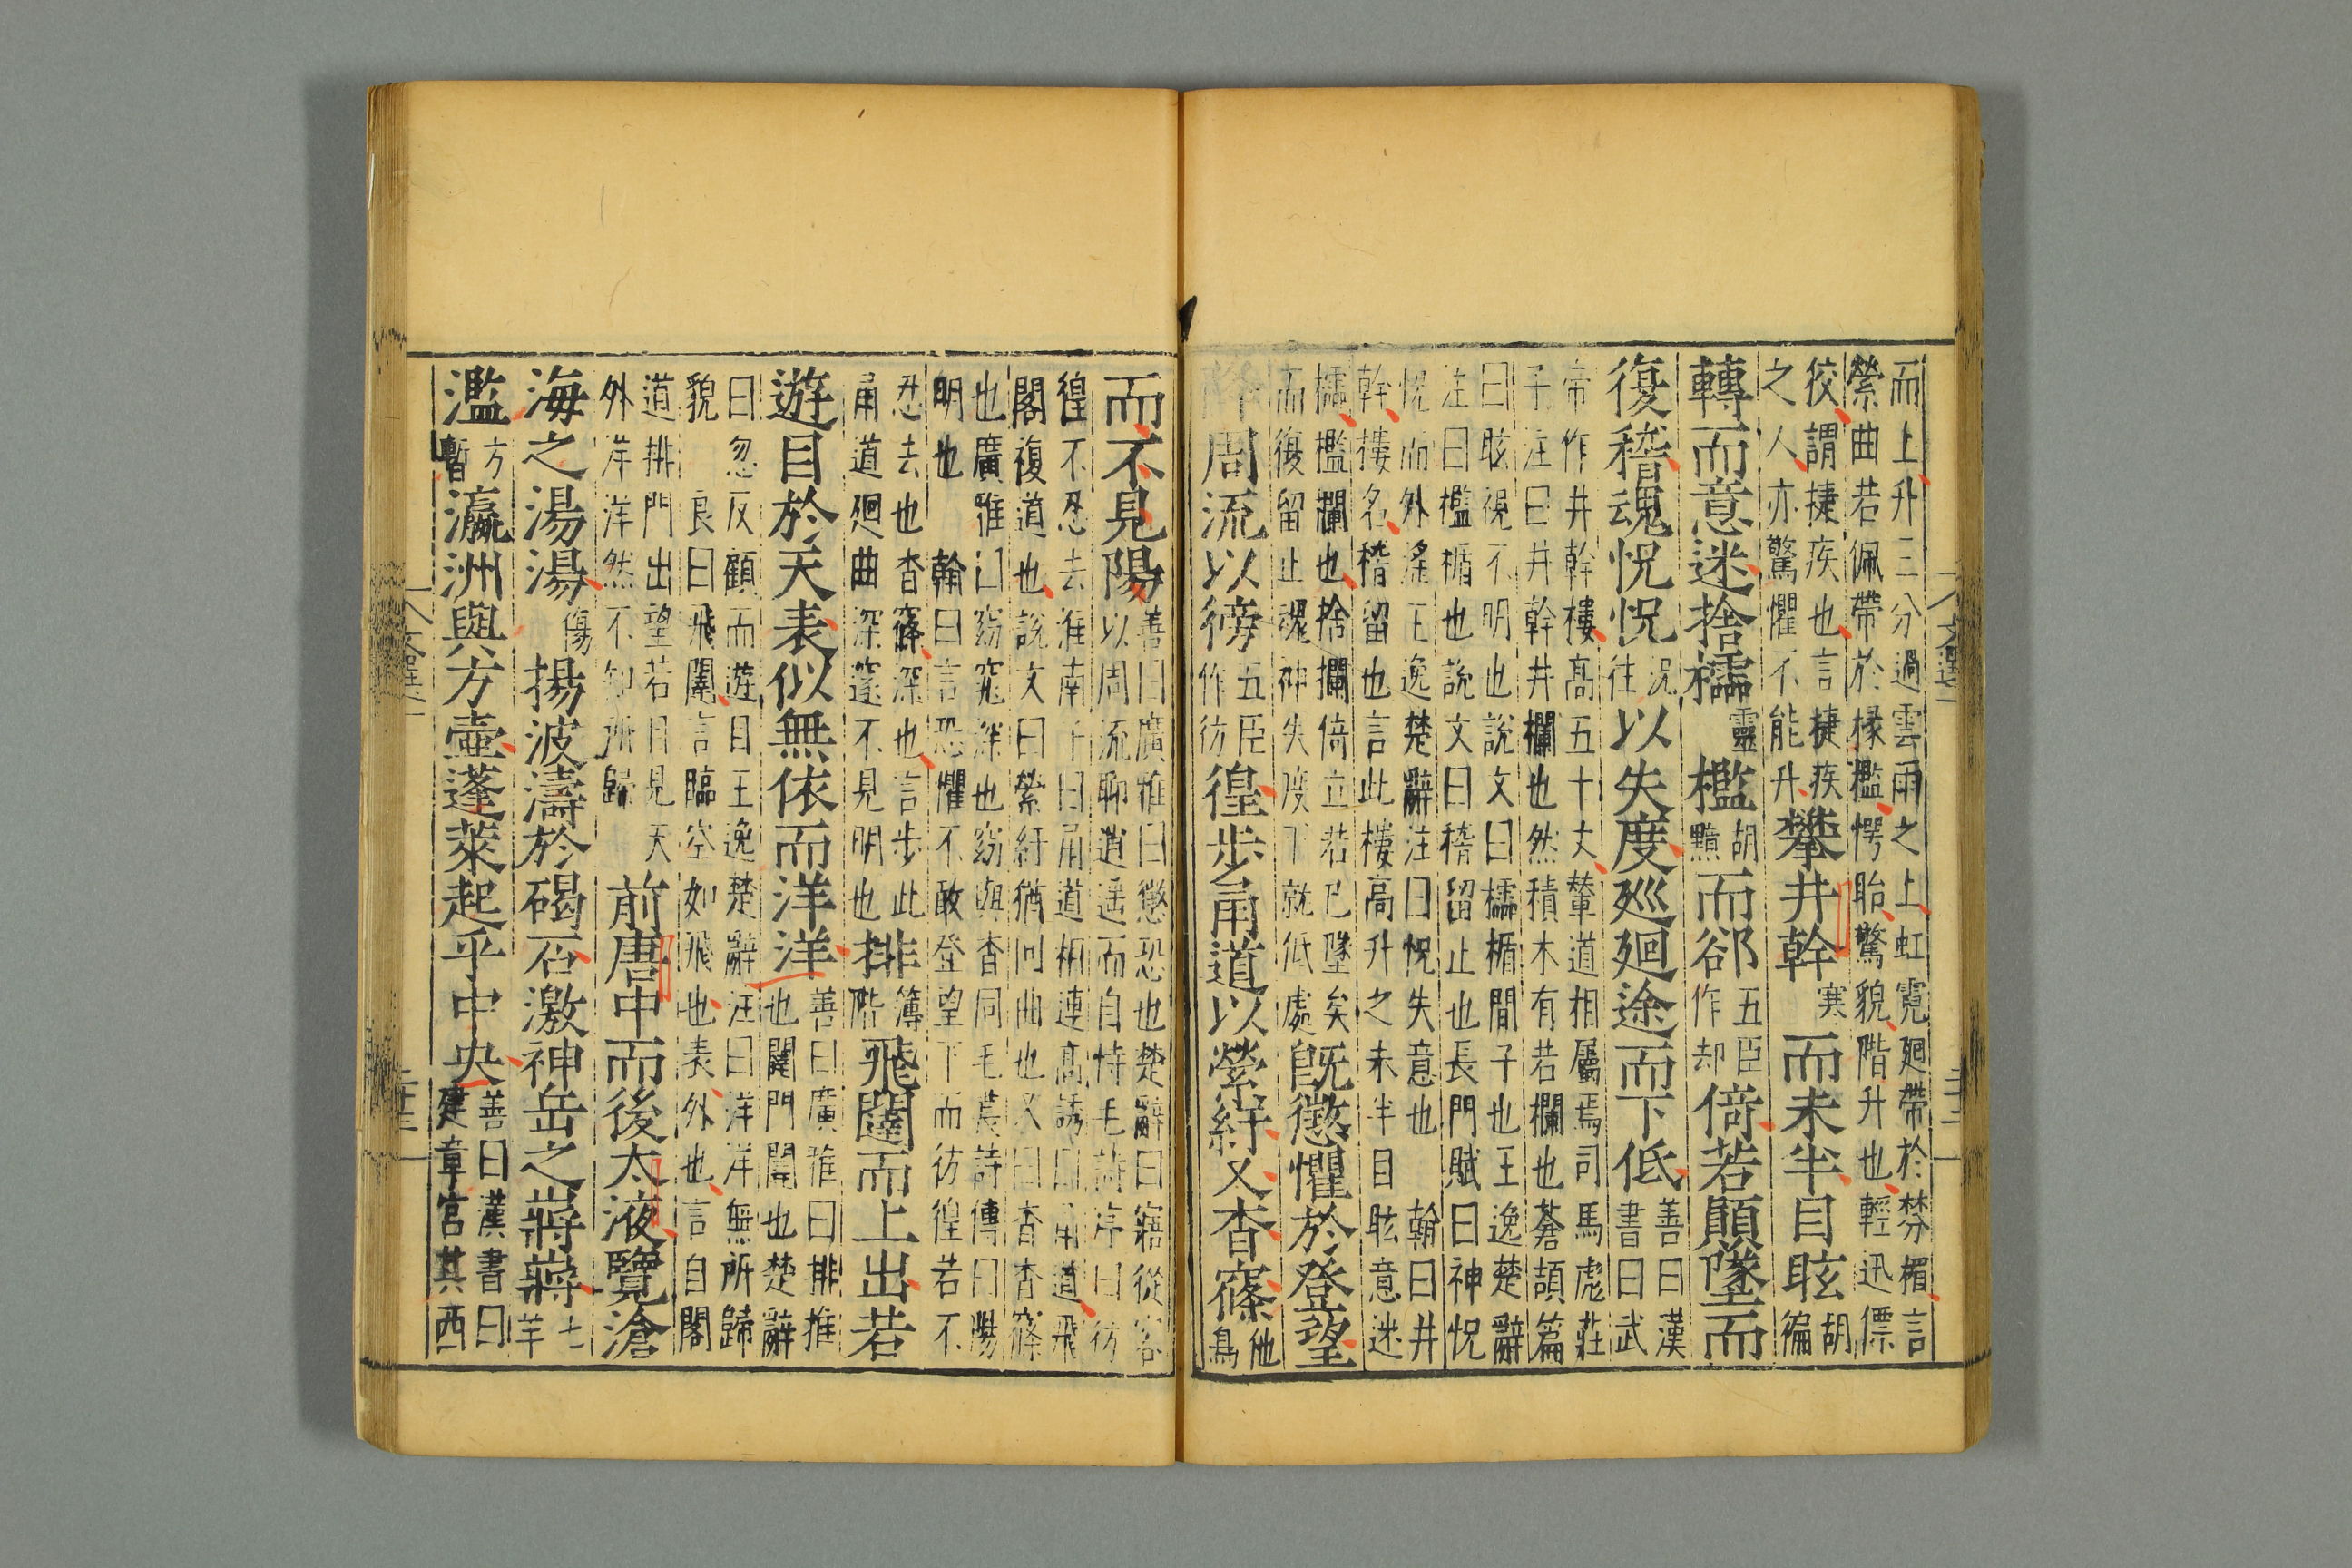 而上升三分過雲雨之上虹霓廻帶於棼楣言
縈曲若佩帶於椽檻愕眙驚貌階升也輕迅僄
狡謂捷疾也言捷疾
之人亦驚懼不能升
攀井幹
寒
而未半目眩
胡
徧
轉而意迷捨櫺
靈
檻
胡
黯
而郤
五臣
作却
倚若顛墜而
復稽魂怳怳
况
往
以失度廵廻途而下低
善曰漢
書曰武
帝作井幹樓高五十丈輦道相屬焉司馬彪莊
子注曰井幹井欄也然積木有若欄也蒼頡篇
曰眩視不明也說文曰櫺楯間子也王逸楚辭
注曰檻楯也說文曰稽留止也長門賦曰神怳
怳而外淫王逸楚辭注曰怳失意也 翰曰井
幹樓名稽留也言此樓高升之未半目眩意迷
櫺檻欄也捨欄倚立若已墜矣
而復留止魂神失度下就低處
旣懲懼於登望
降周流以徬
五臣
作彷
徨步甬道以縈紆又杳窱
他
鳥
而不見陽
善曰廣雅曰懲恐也楚辭曰寤從容
以周流聊逍遥而自恃毛詩序曰彷
徨不忍去淮南子曰甬道相連高誘曰甬道飛
閣複道也說文曰縈紆猶回曲也又曰杳杳窱
也廣雅曰窈窕深也窈與杳同毛萇詩傳曰陽
明也 翰曰言恐懼不敢登望下而彷徨若不
忍去也杳窱深也言步此
甬道廻曲深邃不見明也
排
簿
階
飛闥而上出若
遊目於天表似無依而洋洋
善曰廣雅曰排推
也闥門闥也楚辭
曰忽反顧而遊目王逸楚辭注曰洋洋無所歸
貌 良曰飛闥言臨空如飛也表外也言自閣
道排門出望若目見天
外洋洋然不知所歸
前唐中而後太液覽滄
海之湯湯
傷
揚波濤於碣石激神岳之嶈嶈
七
羊
濫
方
暫
瀛洲與方壷蓬萊起乎中央
善曰漢書曰
建章宮其西